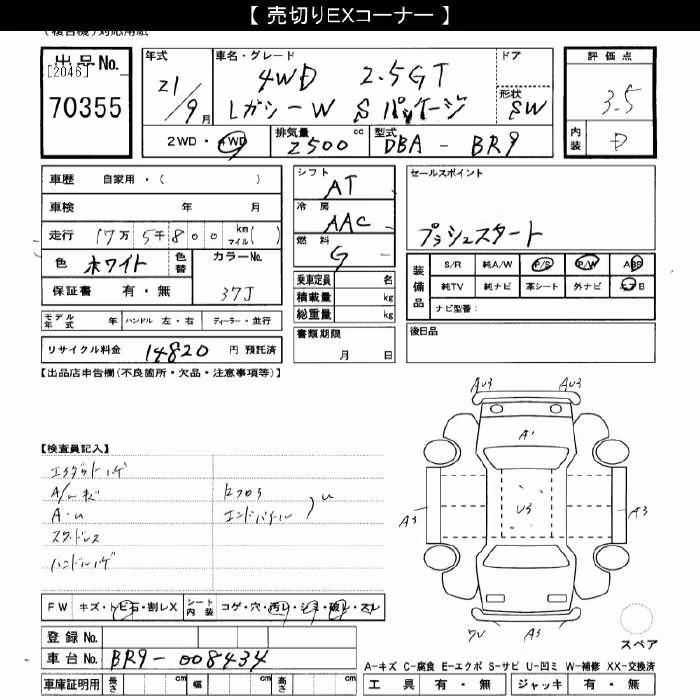 【 売切りEXコーナー 】
(複合機)対応用紙
出品No.
[2046]
70355
年式 21/9月
車名・グレード 4WD 2.5GT
レガシーW Sパッケージ
ドア
形状 SW
2WD・4WD
排気量 2500 cc
型式 DBA - BR9
評価点 3.5
内装 D
車歴 自家用・( )
車検 年 月
走行 17万 5千800 km マイル( )
色 ホワイト 色替 カラーNo. 37J
保証書 有・無
モデル年式 年 ハンドル 左・右 ディーラー・並行
リサイクル料金 14820 円 預託済
シフト AT
冷房 AAC
燃料 G
乗車定員 名
積載量 kg
総重量 kg
書類期限
月 日
セールスポイント
プッシュスタート
装備品 S/R 純A/W P/S P/W ABS
純TV 純ナビ 革シート 外ナビ エアB
ナビ型番:
後日品
【出品店申告欄(不良箇所・欠品・注意事項等)】
【検査員記入】
A/ キズ
A・U
ハンドルハゲ
エンドバイル U
AU3 AU3
A1
A3 U3 A3
A3
FW キズ・トビ石・割レX シート内装 コゲ・穴・汚レ・シミ・破レ・スレ
登録No.
車台No. BR9-008434
車庫証明用 長さ cm 幅 cm 高さ cm
スペア
A-キズ C-腐食 E-エクボ S-サビ U-凹ミ W-補修 XX-交換済
工具 有・無 ジャッキ 有・無